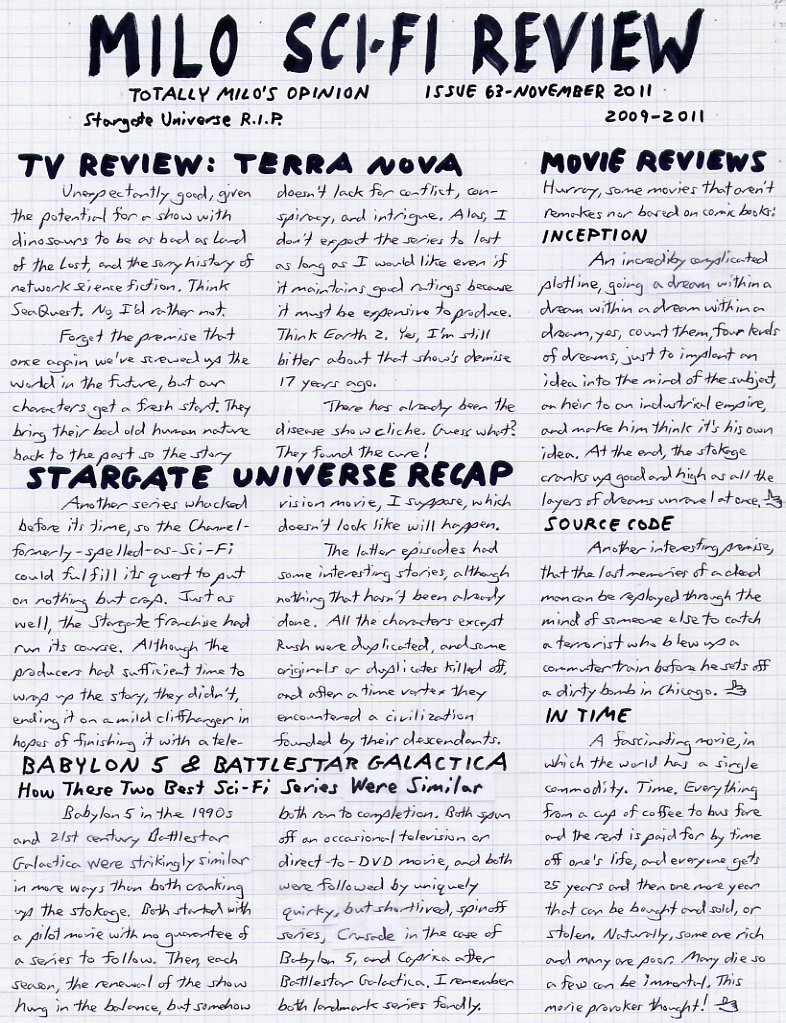 MILO SCI-FI REVIEW
TOTALLY MILO'S OPINION ISSUE 63-NOVEMBER 2011
Stargate Universe R.I.P. 2009-2011
TV REVIEW: TERRA NOVA
Unexpectantly good, given
the potential for a show with
dinosaurs to be as bad as Land
of the Lost, and the sorry history of
network science fiction. Think
SeaQuest. No, I'd rather not.
Forget the premise that
once again we've screwed up the
world in the future, but our
characters get a fresh start. They
bring their bad old human nature
back to the past so the story
doesn't lack for conflict, con-
spiracy, and intrigue. Alas, I
don't expect the series to last
as long as I would like even if
it maintains good ratings because
it must be expensive to produce.
Think Earth 2. Yes, I'm still
bitter about that show's demise
17 years ago.
There has already been the
disease show cliche. Guess what?
They found the cure!
STARGATE UNIVERSE RECAP
Another series whacked
before its time, so the Channel-
formerly-spelled-as-Sci-Fi
could fulfill its quest to put
on nothing but crap. Just as
well, the Stargate franchise had
run its course. Although the
producers had sufficient time to
wrap up the story, they didn't,
ending it on a mild cliffhanger in
hopes of finishing it with a tele-
vision movie, I suppose, which
doesn't look like will happen.
The latter episodes had
some interesting stories, although
nothing that hasn't been already
done. All the characters except
Rush were duplicated, and some
originals or duplicates killed off,
and after a time vortex they
encountered a civilization
founded by their descendants.
BABYLON 5 & BATTLESTAR GALACTICA
How These Two Best Sci-Fi Series Were Similar
Babylon 5 in the 1990s
and 21st century Battlestar
Galactica were strikingly similar
in more ways than both cranking
up the stokage. Both started with
a pilot movie with no guarantee of
a series to follow. Then, each
season, the renewal of the show
hung in the balance, but somehow
both ran to completion. Both spun
off an occasional television or
direct-to-DVD movie, and both
were followed by uniquely
quirky, but shortlived, spinoff
series, Crusade in the case of
Babylon 5, and Caprica after
Battlestar Galactica. I remember
both landmark series fondly.
MOVIE REVIEWS
Hurray, some movies that aren't
remakes nor based on comic books!
INCEPTION
An incredibly complicated
plotline, going a dream within a
dream within a dream within a
dream, yes, count them, four levels
of dreams, just to implant an
idea into the mind of the subject,
an heir to an industrial empire,
and make him think it's his own
idea. At the end, the stokage
cranks up good and high as all the
layers of dreams unravel at once.
SOURCE CODE
Another interesting premise,
that the last memories of a dead
man can be replayed through the
mind of someone else to catch
a terrorist who blew up a
commuter train before he sets off
a dirty bomb in Chicago.
IN TIME
A fascinating movie, in
which the world has a single
commodity. Time. Everything
from a cup of coffee to bus fare
and the rent is paid for by time
off one's life, and everyone gets
25 years and then one more year
that can be bought and sold, or
stolen. Naturally, some are rich
and many are poor. Many die so
a few can be immortal. This
movie provokes thought!